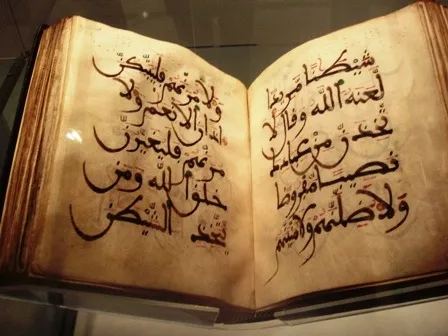 شيطنا مريدا
لعنه الله وقال لا
تخذن من عبادك
نصيبا مفروضا
ولاضلنهم ولامنينهم
ولامرنهم فليبتكن
ءاذان الانعم ولا
مرنهم فليغيرن
خلق الله ومن
يتخذ الشيطن